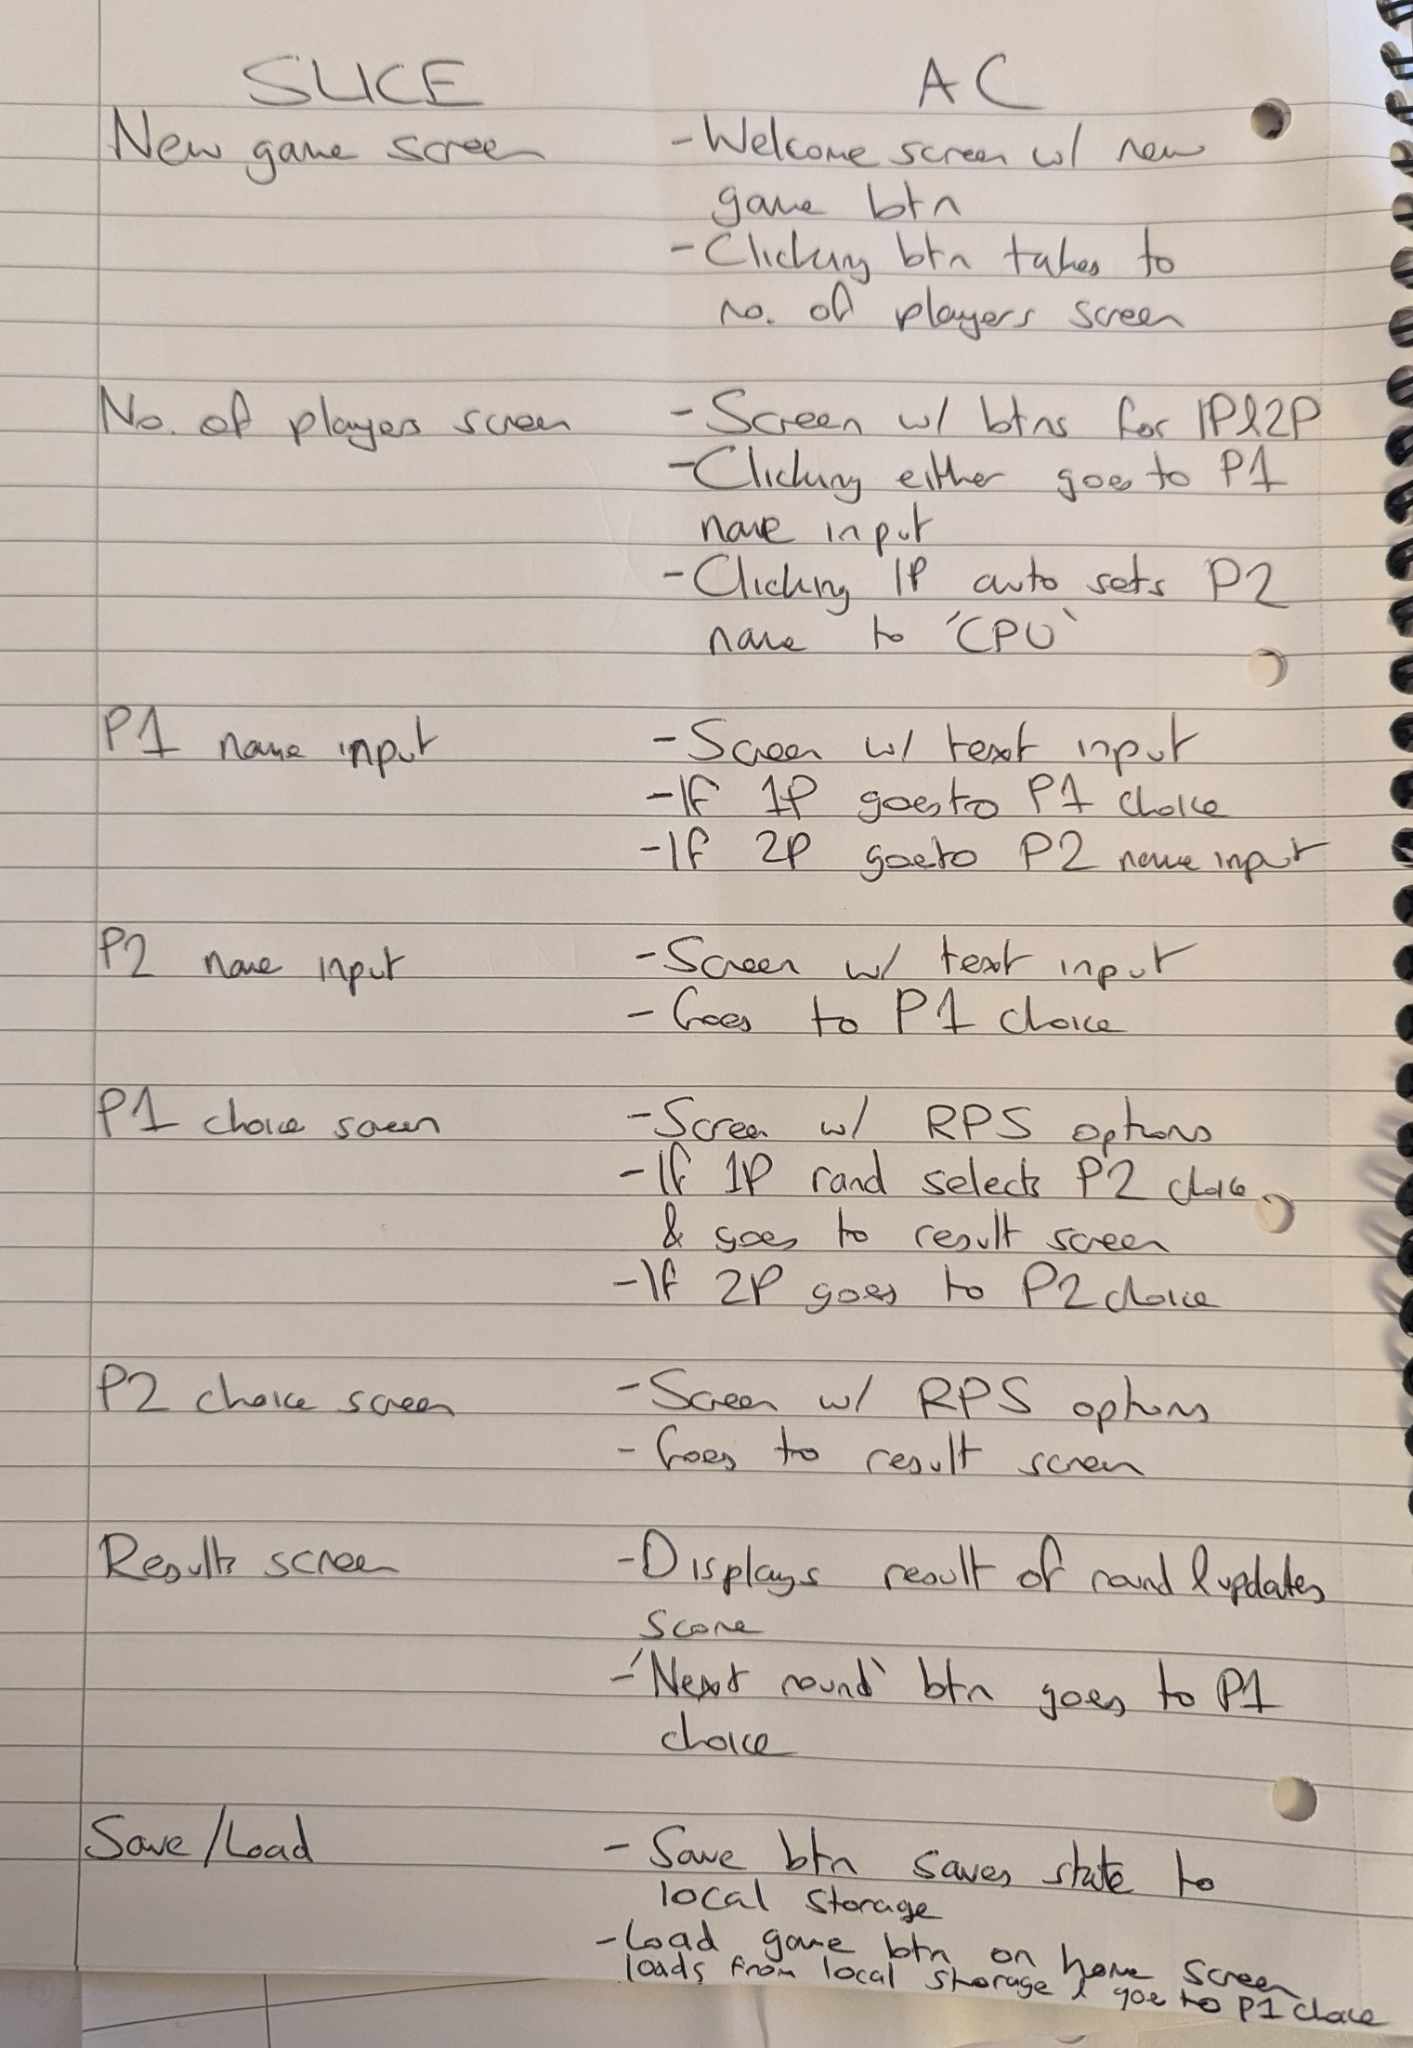 SLICE AC
New game screen - Welcome screen w/ new
game btn
- Clicking btn takes to
no. of players screen
No. of players screen - Screen w/ btns for 1P&2P
- Clicking either goes to P1
name input
- Clicking 1P auto sets P2
name to 'CPU'
P1 name input - Screen w/ text input
- If 1P goes to P1 choice
- If 2P goes to P2 name input
P2 name input - Screen w/ text input
- Goes to P1 choice
P1 choice screen - Screen w/ RPS options
- If 1P rand selects P2 choice
& goes to result screen
- If 2P goes to P2 choice
P2 choice screen - Screen w/ RPS options
- Goes to result screen
Results screen - Displays result of round & updates
score
- 'Next round' btn goes to P1
choice
Save/Load - Save btn saves state to
local storage
- Load game btn on home screen
loads from local storage & goes to P1 choice